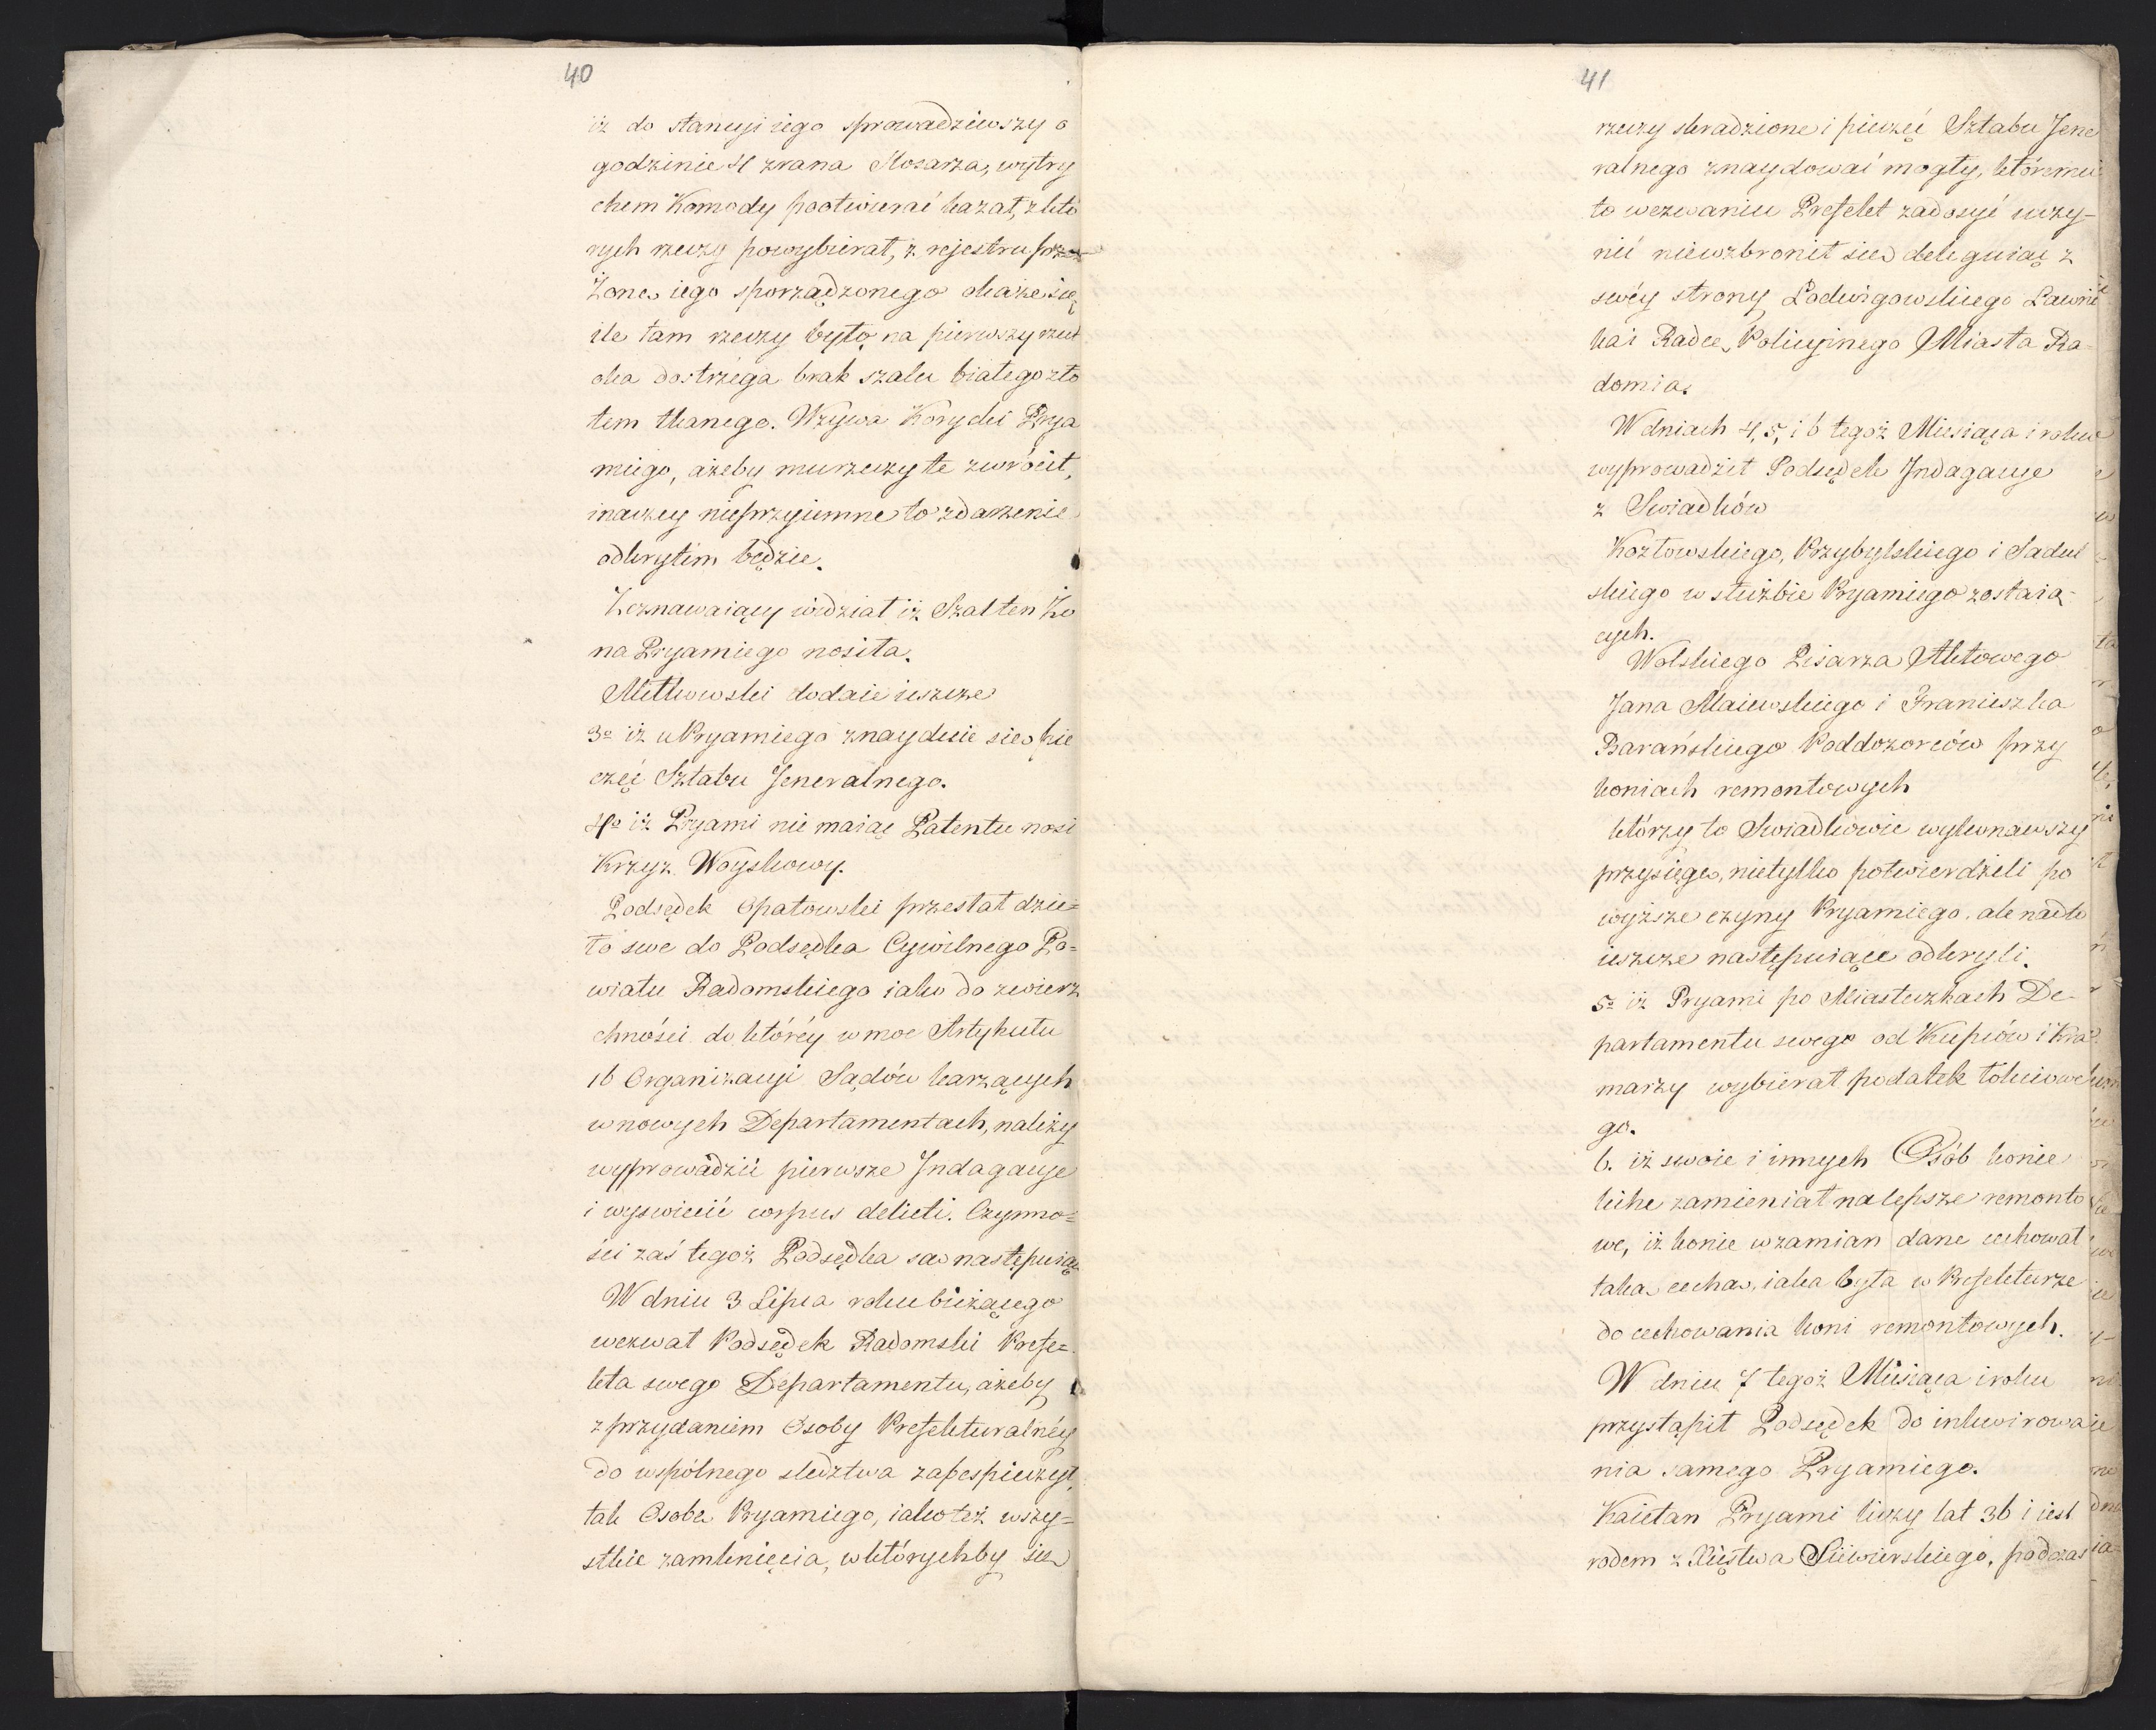 40
iż do stancyi iego sprowadziwszy o
godzinie 4 zrana slosarza, wytry
chem Komody pootwierać kazał, z któ
rych rzeczy powybierał, z rejestru przez
Żonę iego sporządzonego okaże się
ile tam rzeczy było na pierwszy rzut
oka dostrzega brak szalu białego zło
tem tkanego. Wzywa Korycki Prya
miego, ażeby mu rzeczy te zwrócił,
inaczey nieprzyiemne to zdarzenie
odkrytem będzie.
Zeznawaiący widział iż Szal ten Żo
na Pryamiego nosiła.
Mittkowski dodaie ieszcze
3o iż u Pryamiego znayduie się pie
częć Sztabu Jeneralnego.
4o iż Pryami nie maiąc Patentu nosi
Krzyż Woyskowy.
Podsędek Opatowski przesłał dzie=
ło swe do Podsędka Cywilnego Po=
wiatu Radomskiego iako do zwierz
chności do któréy w moc Artykułu
16 Organizacyi Sądów karzących
w nowych Departamentach, należy
wyprowadzić pierwsze Indagacye
i wyswiecić corpus delicti. Czynno=
ści zaś tegoż Podsędka są następuiące
W dniu 3 Lipca roku bieżącego
wezwał Podsędek Radomski Prefe=
kta swego Departamentu, ażeby
z przydaniem Osoby Prefekturalnéy
do wspólnego sledztwa zabespieczył,
tak Osobę Pryamiego, iako też wszy=
stkie zamknięcia, w którychby się
41
rzeczy skradzione i pieczęć Sztabu Jene
ralnego znaydować mogły, któremu
to wezwaniu Prefekt zadosyć uczy-
nić niewzbronił się deleguiąc z
swéy strony Lodwigowskiego Ławni
ka i Radcę Policyinego Miasta Ra
domia.
W dniach 4, 5, i 6 tegoż Miesiąca i roku
wyprowadził Podsędek Indagacye
z Swiadków
Kozłowskiego, Przybylskiego i Sadul
skiego w służbie Pryamiego zostaią-
cych.
Wolskiego Pisarza Aktowego
Jana Maiewskiego i Franciszka
Barańskiego Poddozorców przy
koniach remontowych
którzy to Swiadkowie wykonawszy
przysięgę, nietylko potwierdzili po
wyższe czyny Pryamiego, ale nadto
ieszcze następuiące odkryli.
5o iż Pryami po Miasteczkach De-
partamentu swego od Kupców i Kra
marzy wybierał podatek łokciowe
go.
6. iż swoie i innych Osób konie
liche zamieniał na lepsze remonto
we, iż konie w zamian dane cechował
taką cechą, iaka była w Prefekturze
do cechowania koni remontowych.
W dniu 7 tegoż Miesiąca i roku
przystąpił Podsędek do inkwirowa
nia samego Pryamiego.
Kaietan Pryami liczy lat 36 i iest
rodem z Xięstwa Siewierskiego, podczas